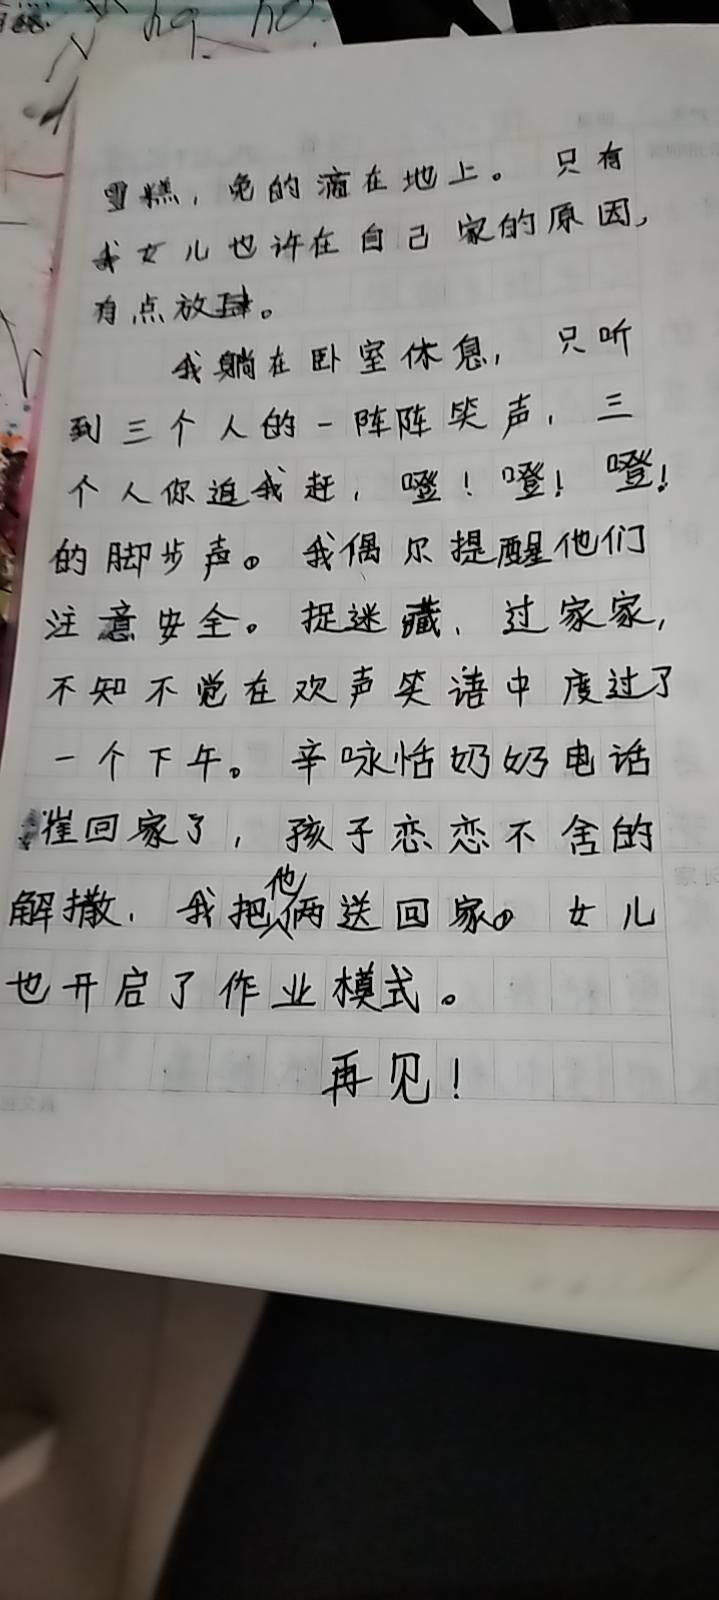 雪糕，免的滴在地上。只有
我女儿也许在自己家的原因，
有点放肆。
我躺在卧室休息，只听
到三个人的一阵阵笑声，三
个人你追我赶，噔！噔！噔！
的脚步声。我偶尔提醒他们
注意安全。捉迷藏、过家家，
不知不觉在欢声笑语中度过了
一个下午。辛咏恬奶奶电话
崔回家了，孩子恋恋不舍的
解撒，我把他俩送回家。女儿
也开启了作业模式。
再见！